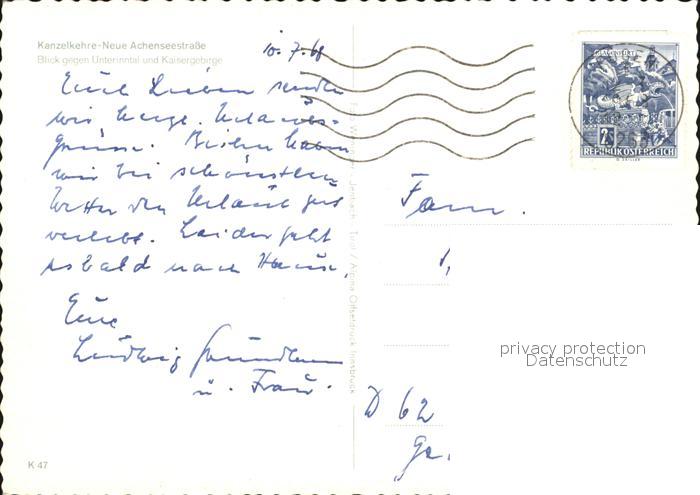 Kanzelkehre-Neue Achenseestraße
Blick gegen Unterinntal und Kaisergebirge
10.7.68
Euch Lieben senden
wir herzl. Urlaubs-
grüsse. Bisher haben
wir bei schönstem
Wetter den Urlaub gut
verlebt. Leider geht
es bald nach Hause.
Eure
Ludwig
u. Frau.
Fam.
D 62
privacy protection
Datenschutz
KLAGENFURT
2
REPUBLIK ÖSTERREICH
Jenbach Tirol / Alpina Offsetdruck Innsbruck
K 47